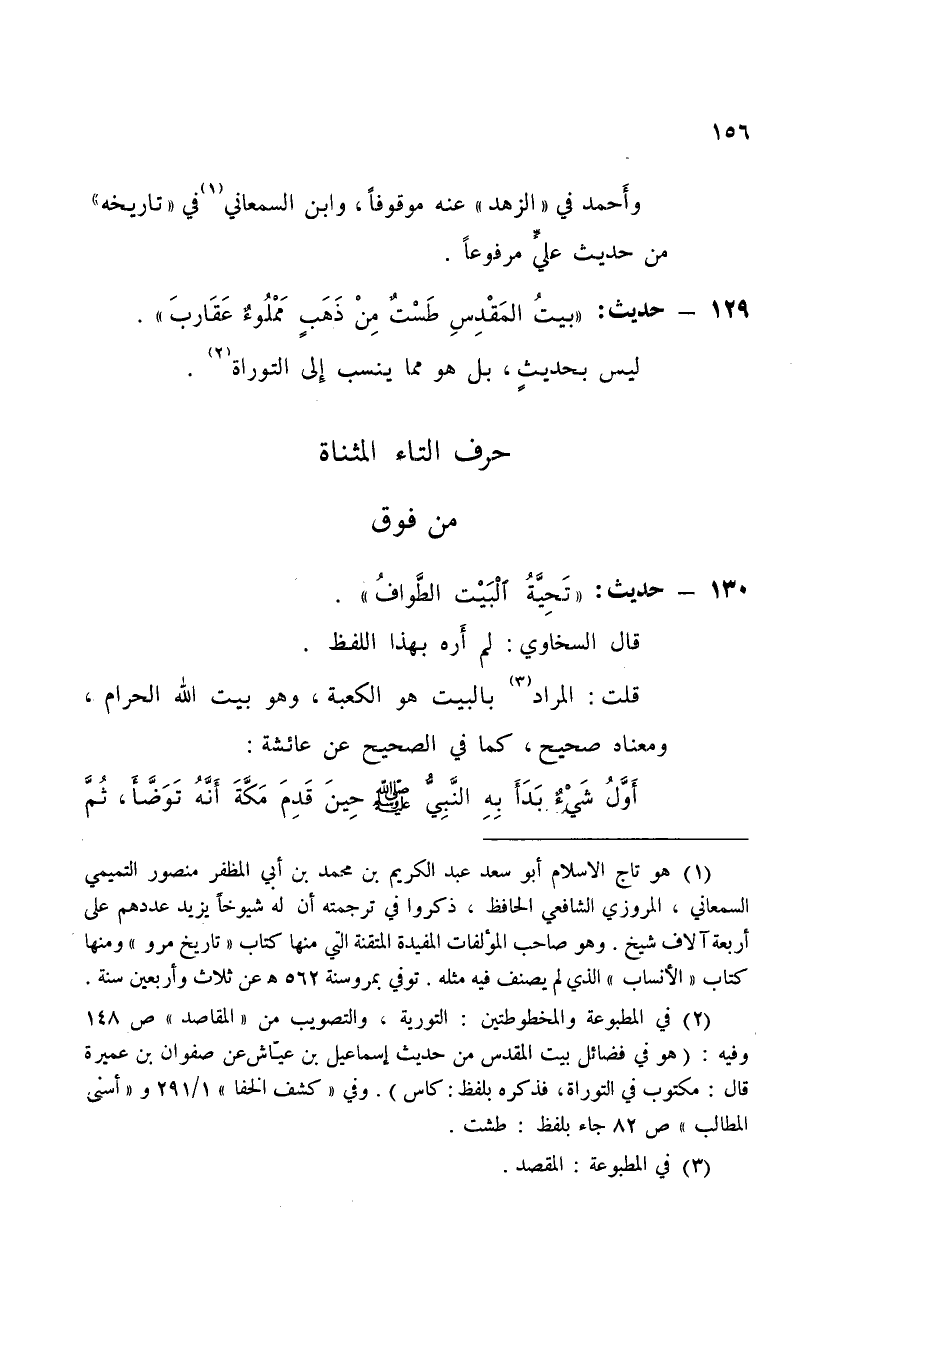 ١٥٦
وأَحمد في « الزهد » عنه موقوفاً ، وابن السمعاني(١) في « تاريخه »
من حديث عليٍّ مرفوعاً .
١٢٩ – حديث : « بيتُ المَقْدِسِ طَسْتٌ مِنْ ذَهَبٍ مَمْلُوءٌ عَقَارِبَ » .
ليس بحديثٍ ، بل هو مما ينسب إلى التوراة(٢) .
حرف التاء المثناة
من فوق
١٣٠ – حديث : « تَحِيَّةُ ٱلْبَيْت الطَّوافُ » .
قال السخاوي : لم أَره بهذا اللفظ .
قلت : المراد(٣) بالبيت هو الكعبة ، وهو بيت الله الحرام ،
ومعناه صحيح ، كما في الصحيح عن عائشة :
أَوَّلُ شَيْءٍ بَدَأَ بِهِ النَّبِيُّ ﷺ حِينَ قَدِمَ مَكَّةَ أَنَّهُ تَوَضَّأَ ، ثُمَّ
(١) هو تاج الاسلام أبو سعد عبد الكريم بن محمد بن أبي المظفر منصور التميمي
السمعاني ، المروزي الشافعي الحافظ ، ذكروا في ترجمته أن له شيوخاً يزيد عددهم على
أربعة آلاف شيخ . وهو صاحب المؤلفات المفيدة المتقنة التي منها كتاب « تاريخ مرو » ومنها
كتاب « الأنساب » الذي لم يصنف فيه مثله . توفي بمرو سنة ٥٦٢ ه عن ثلاث وأربعين سنة .
(٢) في المطبوعة والمخطوطتين : التورية ، والتصويب من « المقاصد » ص ١٤٨
وفيه : ( هو في فضائل بيت المقدس من حديث إسماعيل بن عيّاش عن صفوان بن عميرة
قال : مكتوب في التوراة ، فذكره بلفظ : كاس ) . وفي « كشف الخفا » ٢٩١/١ و « أسنى
المطالب » ص ٨٢ جاء بلفظ : طشت .
(٣) في المطبوعة : المقصد .